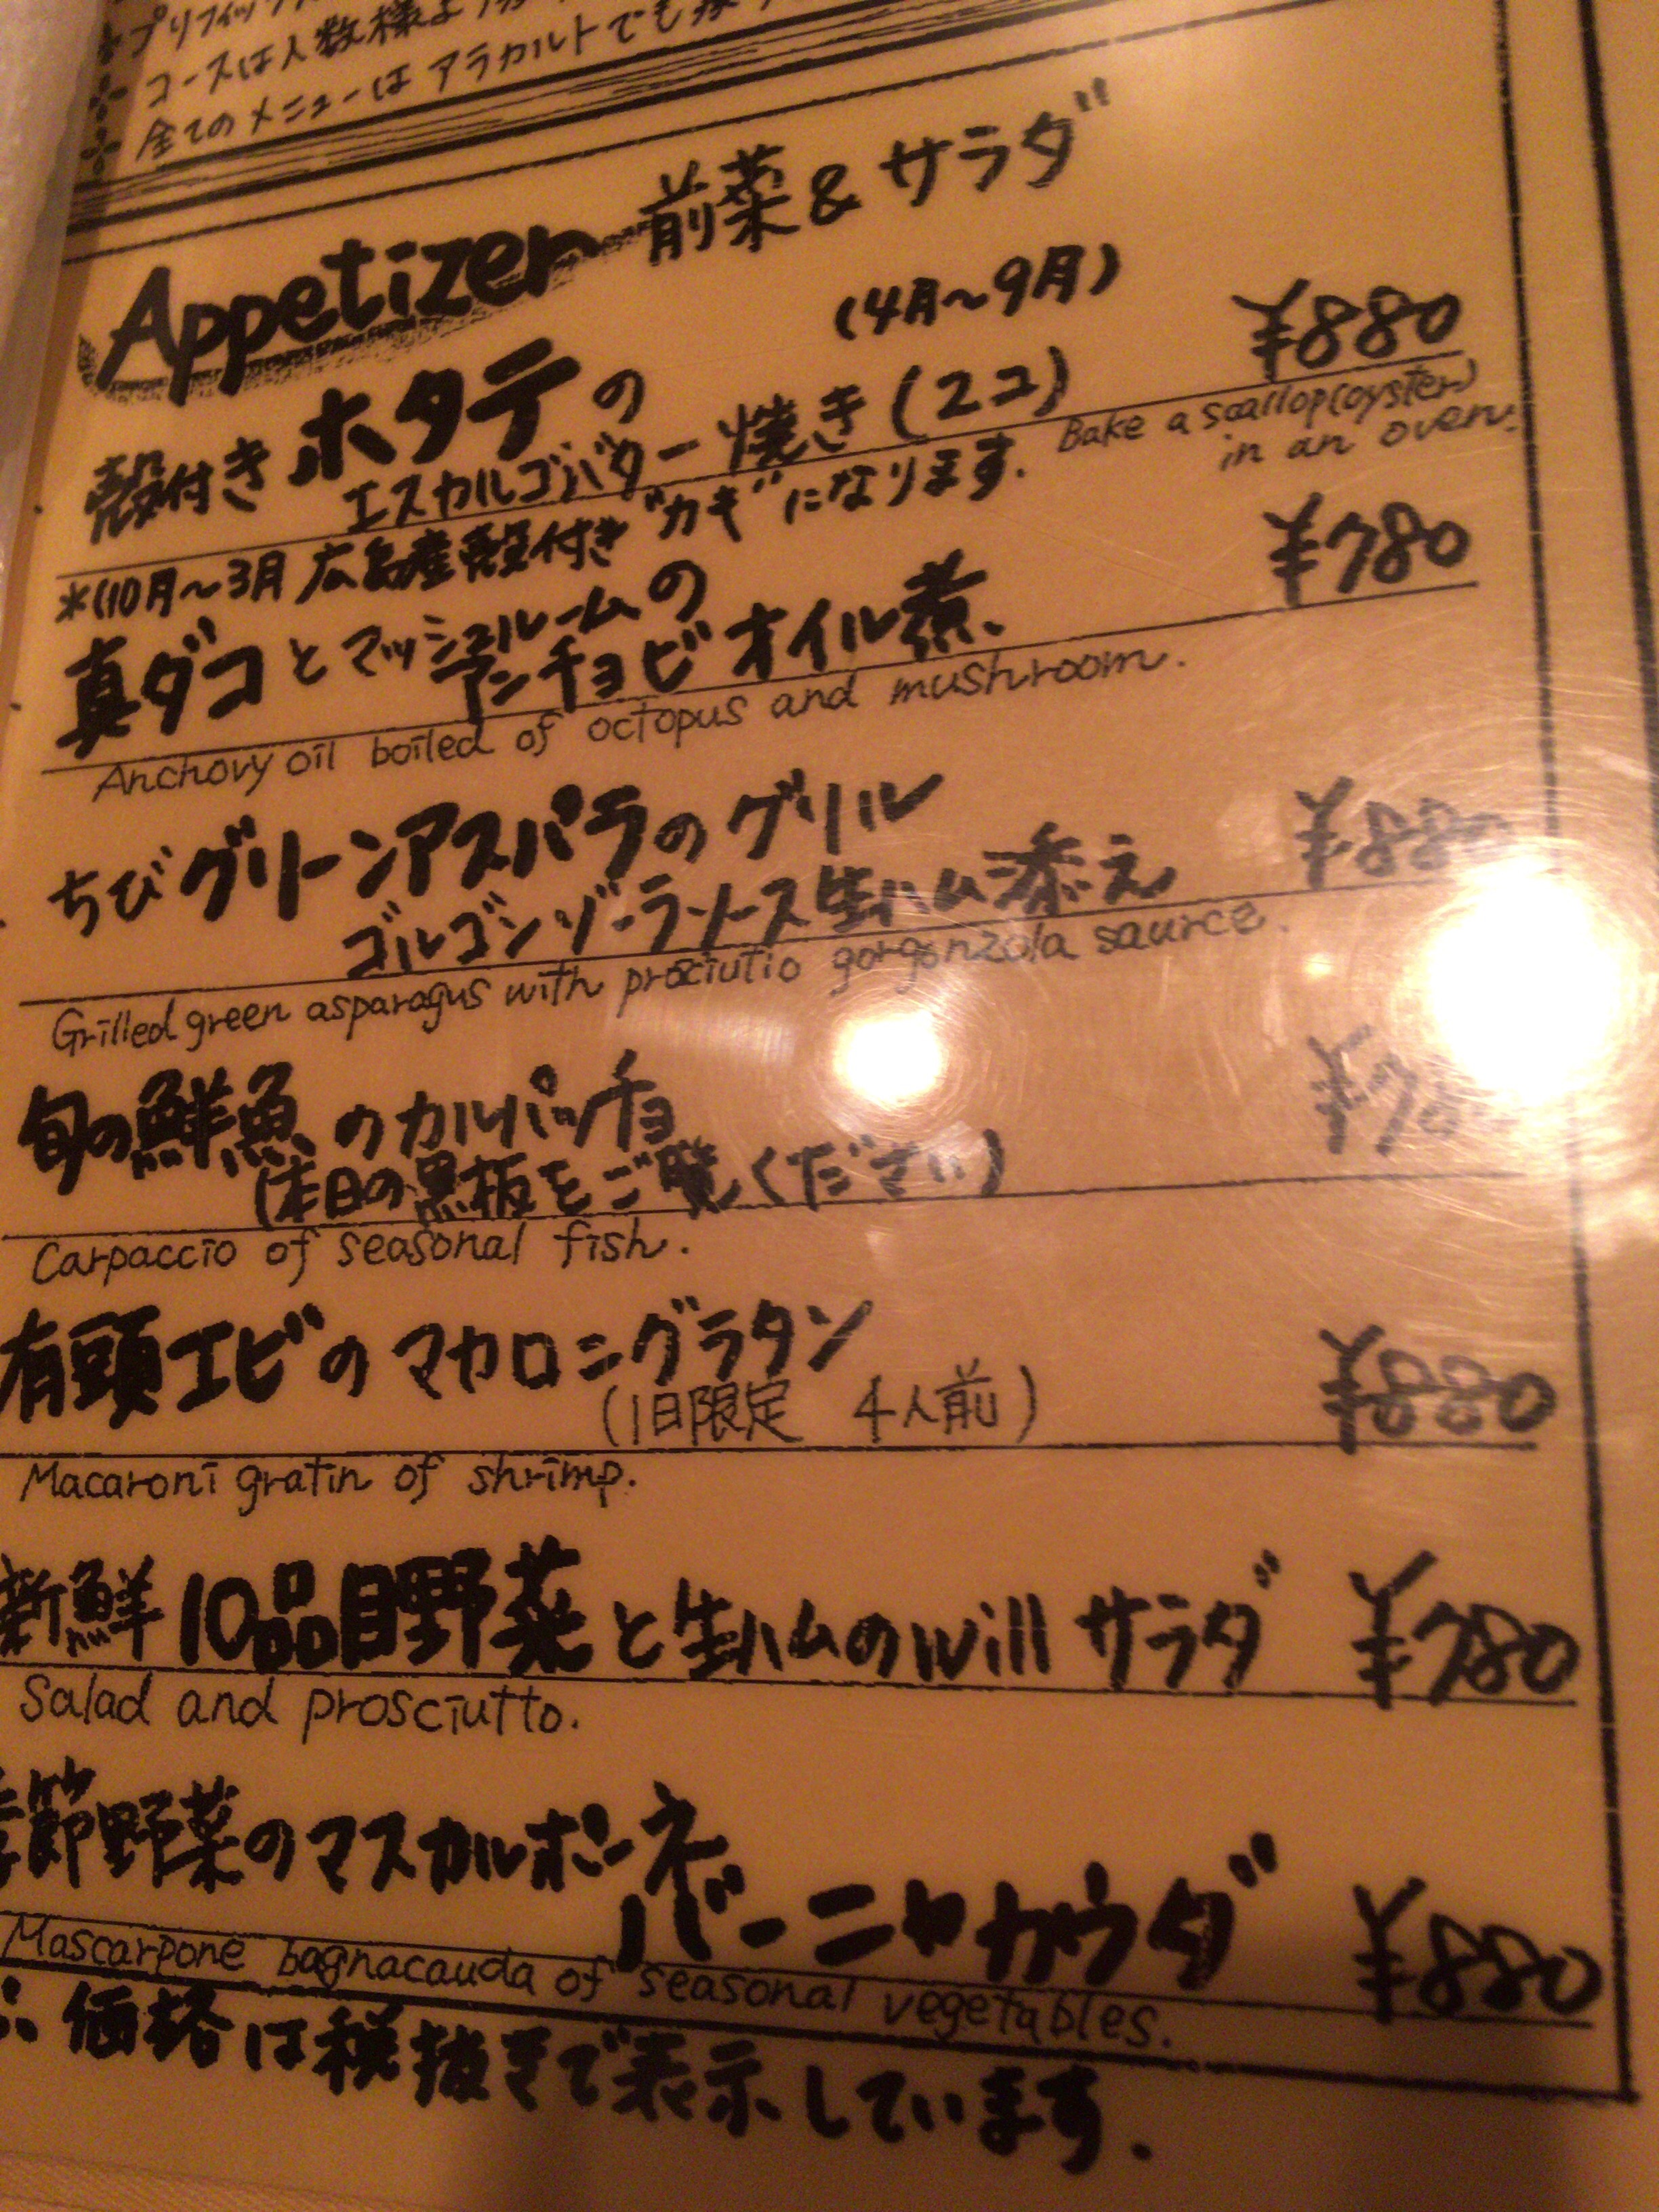 *プリフィックス
コースは人数様より
全てのメニューはアラカルトでも
Appetizer 前菜&サラダ
(4月〜9月)
殻付きホタテの
エスカルゴバター焼き(2コ) ¥880
*(10月〜3月 広島産殻付き"カキ"になります.
Bake a scallop(oyster)
in an oven.
真ダコとマッシュルームの
アンチョビオイル煮 ¥780
Anchovy oil boiled of octopus and mushroom.
ちびグリーンアスパラのグリル
ゴルゴンゾーラソース生ハム添え ¥880
Grilled green asparagus with prosciutio gorgonzola saurce.
旬の鮮魚のカルパッチョ
(本日の黒板をご覧ください)
Carpaccio of seasonal fish.
有頭エビのマカロニグラタン
(1日限定 4人前) ¥880
Macaroni gratin of shrimp.
新鮮10品目野菜と生ハムのwillサラダ ¥780
Salad and prosciutto.
季節野菜のマスカルポーネ
バーニャカウダ ¥880
Mascarpone bagnacauda of seasonal vegetables.
価格は税抜きで表示しています.